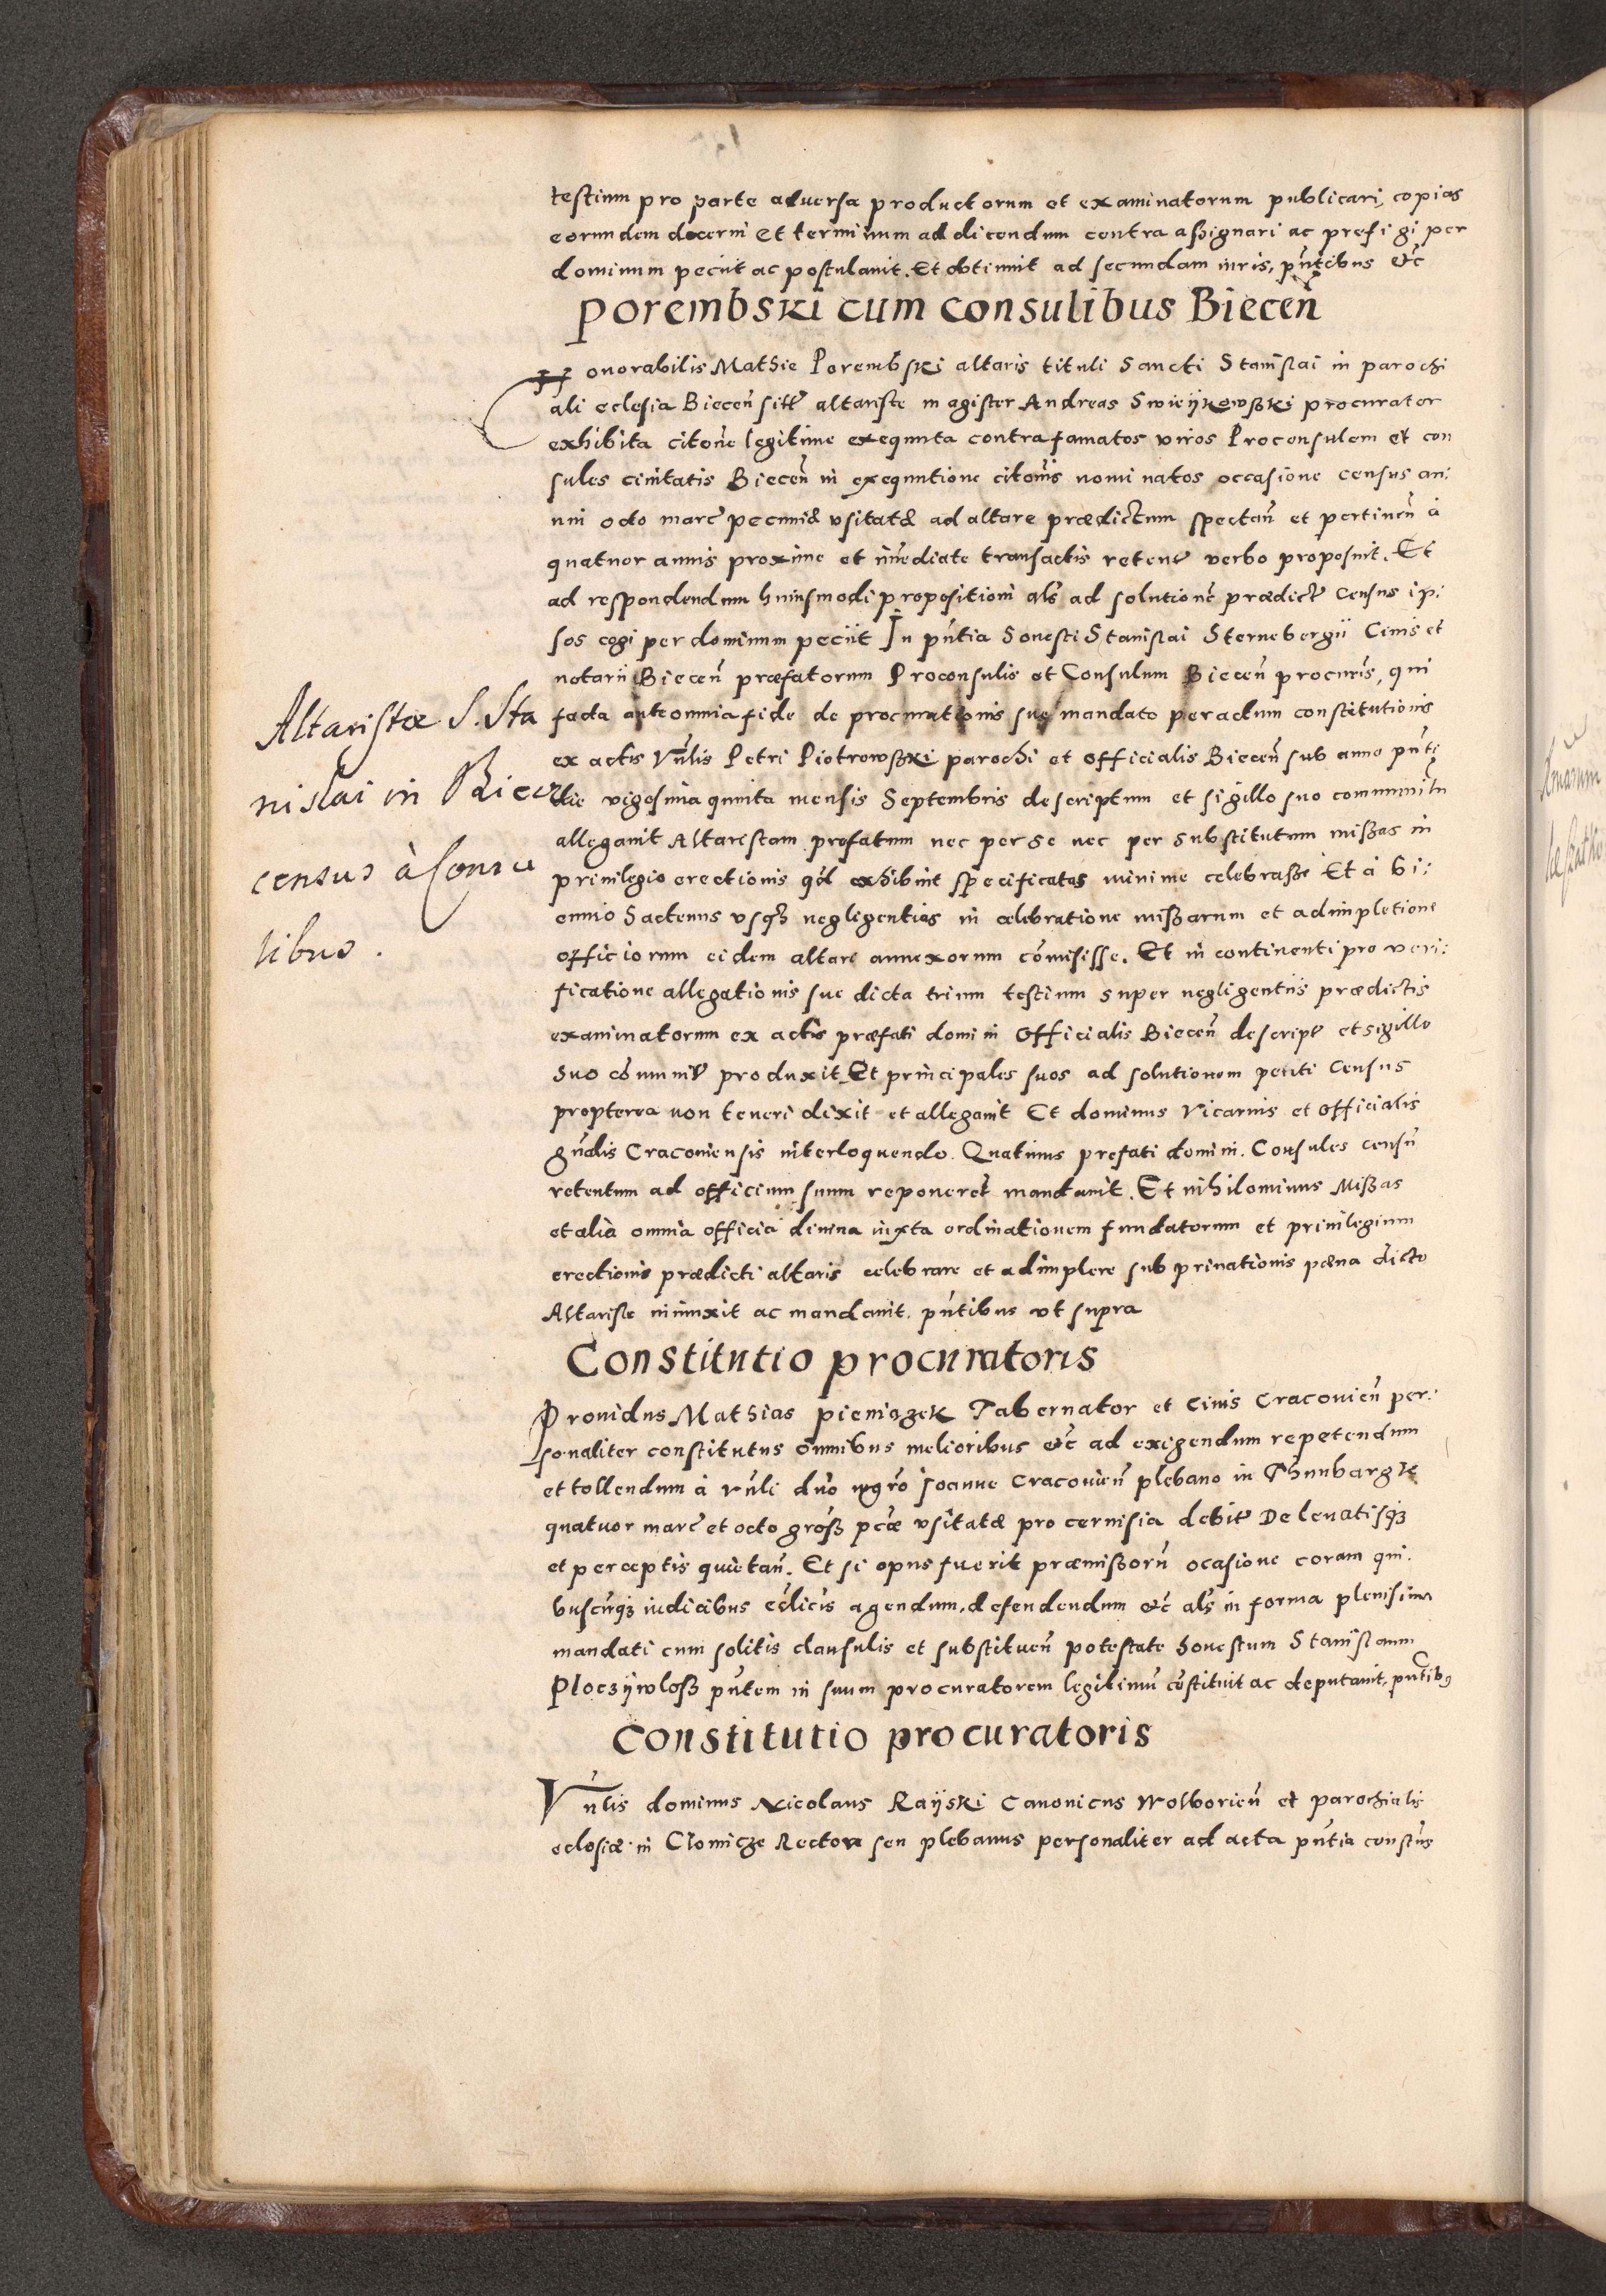 testium pro parte aduersa productorum et examinatorum publicari, copias
eorundem decerni et terminum ad dicendum contra assignari ac prefigi per
dominum peciit ac postulauit. Et obtinuit ad secundam iuris, pñtibus etc̃
Porembski cum consulibus Bieceñ
Honorabilis Mathie Porembski altaris tituli Sancti Stanislai in parochi
ali eclesia Bieceñ sitt̃ altariste magister Andreas Swieykowski procurator
exhibita citoñe legitime exequuta contra famatos viros Proconsulem et con
sules ciuitatis Bieceñ in exequutione citoñis nominatos occasione census an:
nui octo marc̃ pecuniæ vsitatæ ad altare prædictum spectañ et pertineñ à
quatuor annis proxime et im̃ediate transactis retent̃ verbo proposuit. Et
ad respondendum huiusmodi propositioni als̃ ad solutionẽ prædict̃ census ip:
sos cogi per dominum peciit In pñtia honesti Stanislai Sternebergii Ciuis et
notarii Bieceñ præfatorum Proconsulis et Consulum Bieceñ procuris̃, qui
facta ante omnia fide de procurationis sue mandato per actum constitutionis
ex actis Vñlis Petri Piotrowski parochi et officialis Bieceñ sub anno pñti
die vigesima quinta mensis Septembris descriptum et sigillo suo communitũ
allegauit Altaristam prefatum nec per se nec per substitutum missas in
priuilegio erectionis qd̃ exhibuit specificatas minime celebrasse Et à bi:
ennio hactenus vsq̃ negligentias in celebratione missarum et adimpletione
officiorum eidem altare annexorum cõmisisse. Et in continenti pro veri:
ficatione allegationis sue dicta trium testium super negligentiis prædictis
examinatorum ex actis præfati domini Officialis Bieceñ descript̃ et sigillo
suo cõmunit̃ produxit Et principales suos ad solutionem petiti Census
propterea non teneri dixit et allegauit Et dominus Vicarius et officialis
gñalis Cracouiensis interloquendo. Quatinus prefati domini. Consules censũ
retentum ad officium suum reponeret mandauit. Et nihilominus Missas
et alia omnia officia diuina iuxta ordinationem fundatorum et priuilegium
erectionis prædicti altaris celebrare et adimplere sub priuationis pæna dicto
Altariste iniunxit ac mandauit. pñtibus vt supra
Altaristæ S. Sta
nislai in Biecz
census à Consu
libus.
Constitutio procuratoris
Prouidus Mathias pieniązek Tabernator et Ciuis Cracouieñ per:
sonaliter constitutus omnibus melioribus etc̃ ad exigendum repetendum
et tollendum à vñli dño mgrõ Joanne Cracouieñ plebano in Thumbargk
quatuor marc̃ et octo gross̃ pcæ̃ vsitatæ pro ceruisia debit̃ De leuatisq̃
et perceptis quietañ. Et si opus fuerit præmissorũ ocasione coram qui:
buscũq̃ iudicibus ecl̃icis agendum, defendendum etc̃ als̃ in forma plenisima
mandati cum solitis clausulis et substitueñ potestate honestum Stanislaum
Ploczywloss pñtem in suum procuratorem legitimũ cõstituit ac deputauit, pñtibus
Constitutio procuratoris
Vñlis dominus Nicolaus Rayski Canonicus Wolborieñ et parochialis
eclesiæ in Clomicze Rector seu plebanus personaliter ad acta pñtia constũs